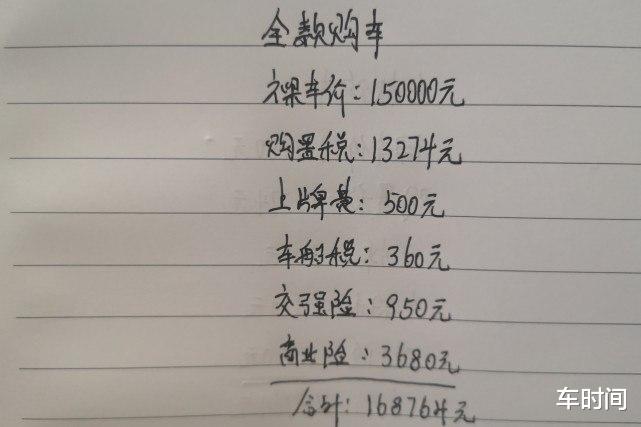 全款购车
裸车价:150000元
购置税:13274元
上牌费:500元
车船税:360元
交强险:950元
商业险:3680元
合计:168764元
车时间